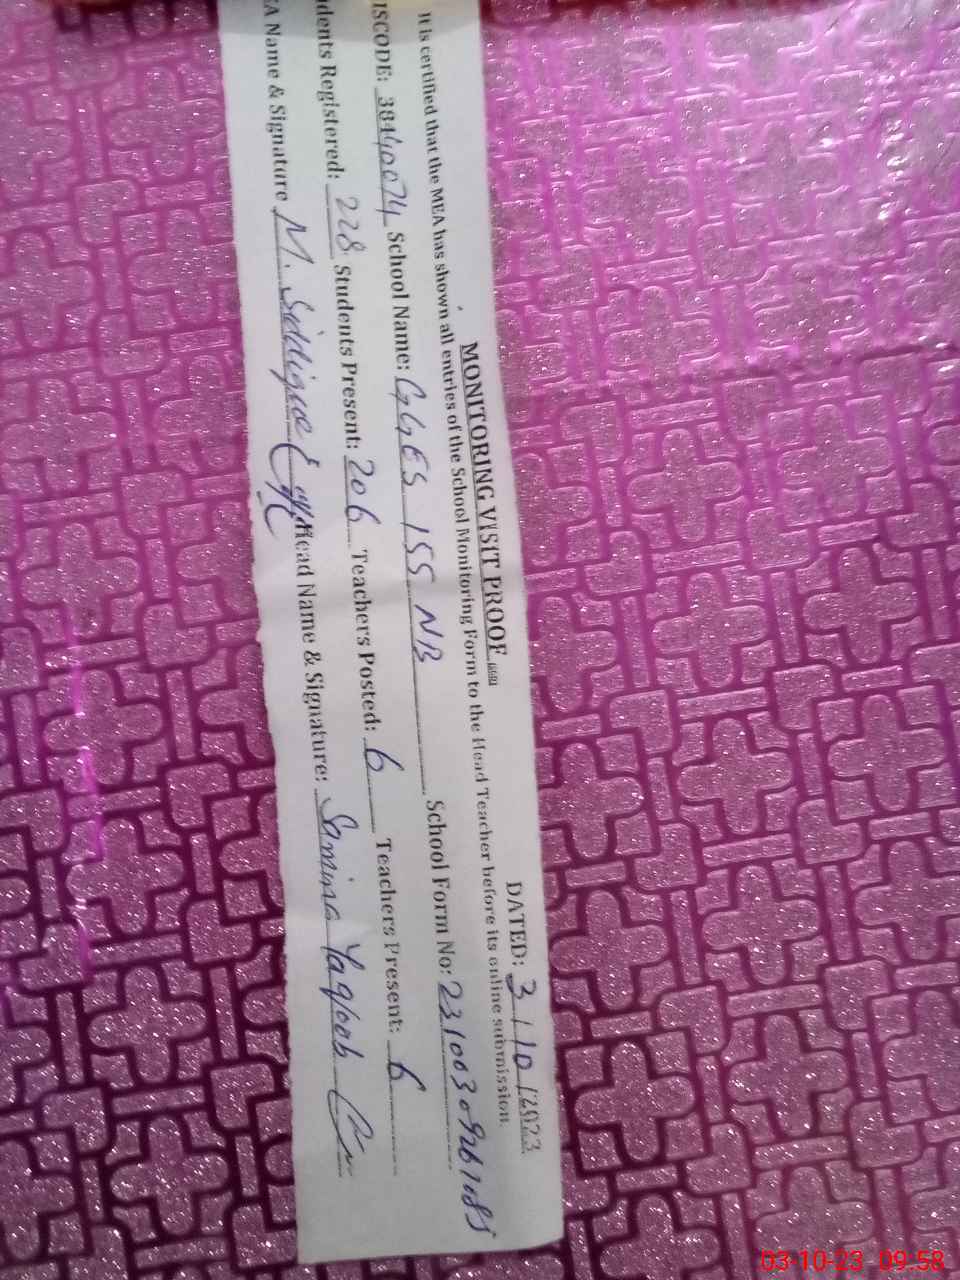 MONITORING VISIT PROOF DATED: 3/10/2023
It is certified that the MEA has shown all entries of the School Monitoring Form to the Head Teacher before its online submission.
ISCODE: 38440074 School Name: GGES 155 NB School Form No: 23100309261085
dents Registered: 228 Students Present: 206 Teachers Posted: 6 Teachers Present: 6
EA Name & Signature M. Siddique Head Name & Signature: Samina Yaqoob
03-10-23 09:58